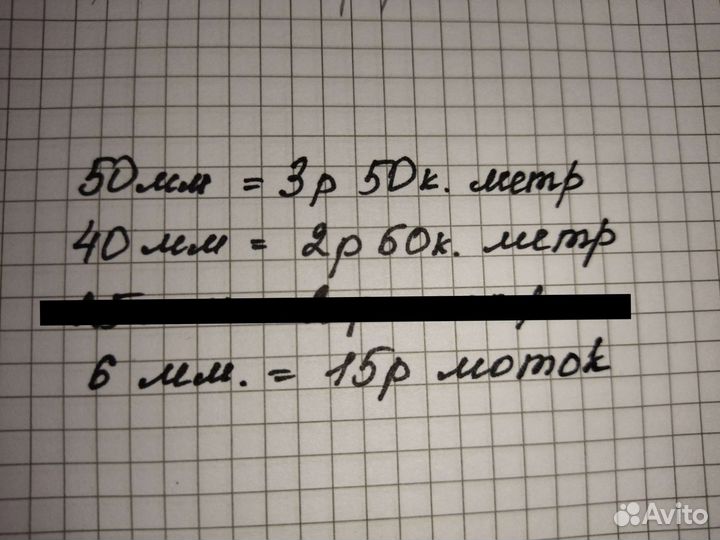 50мм = 3р 50к. метр
40мм = 2р 60к. метр
6 мм. = 15р моток
Avito